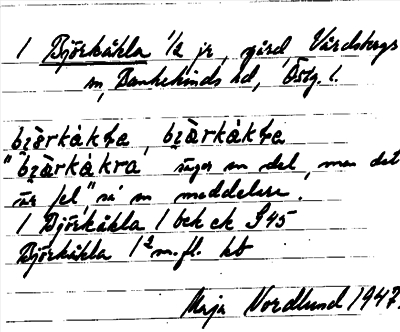 1 Björkåkla 1/2 jr, gård, Vårdsbergs
sn, Bankekinds hd, Östg. l.
bʒ̀ärkåkɭa, bʒ̀ärkåkɭa
"bʒ̀ärkåkra säger en del, men det
är fel" sä en meddelare.
1 Björkåkla 1 bek ek S 45
Björkåkla 1² m.fl. kb
Maja Nordlund 1947.